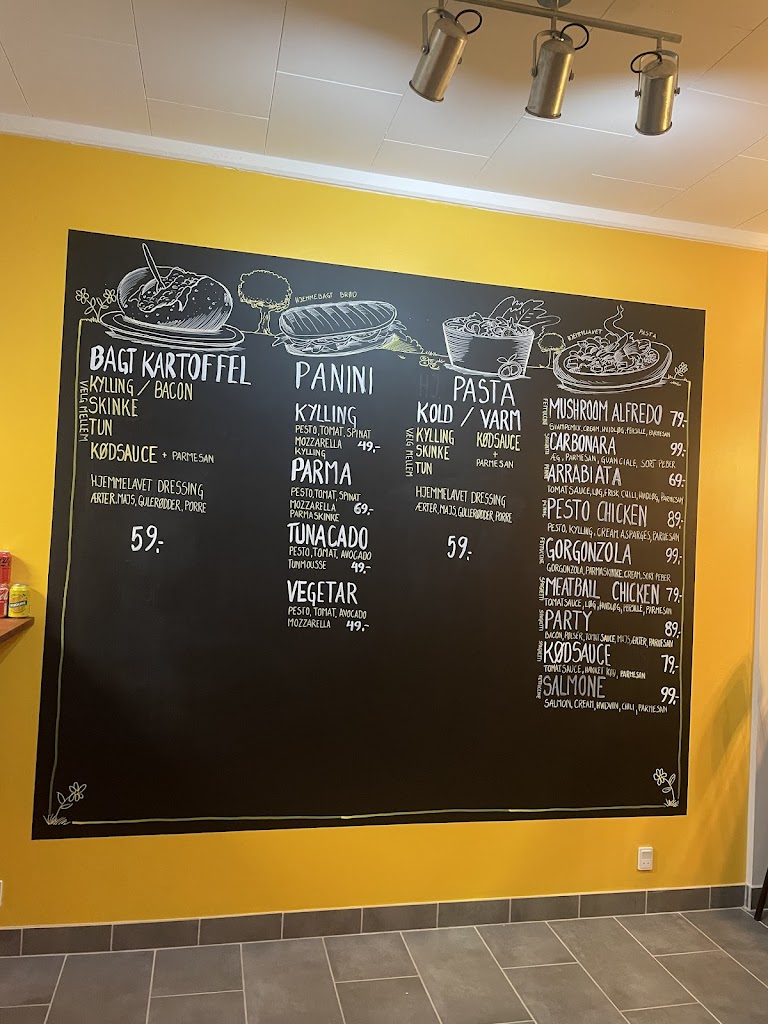 BAGT KARTOFFEL
VÆLG MELLEM
KYLLING / BACON
SKINKE
TUN
KØDSAUCE + PARMESAN
HJEMMELAVET DRESSING
ÆRTER, MAJS, GULERØDDER, PORRE
59,-
HJEMMEBAGT BRØD
PANINI
KYLLING
PESTO, TOMAT, SPINAT
MOZZARELLA 49,-
KYLLING
PARMA
PESTO, TOMAT, SPINAT
MOZZARELLA 69,-
PARMASKINKE
TUNACADO
PESTO, TOMAT, AVOCADO
TUNMOUSSE 49,-
VEGETAR
PESTO, TOMAT, AVOCADO
MOZZARELLA 49,-
PASTA
KOLD / VARM
VÆLG MELLEM
KYLLING KØDSAUCE
SKINKE +
TUN PARMESAN
HJEMMELAVET DRESSING
ÆRTER, MAJS, GULERØDDER, PORRE
59,-
HJEMMELAVET PASTA
FETTUCCINE MUSHROOM ALFREDO 79,-
SVAMPEMIX, CREAM, HVIDLØG, PERSILLE, PARMESAN
SPAGHETTI CARBONARA 99,-
ÆG, PARMESAN, GUANCIALE, SORT PEBER
PENNE ARRABIATA 69,-
TOMATSAUCE, LØG, FRISK CHILI, HVIDLØG, PARMESAN
PENNE PESTO CHICKEN 89,-
PESTO, KYLLING, CREAM, ASPARGES, PARMESAN
FETTUCCINE GORGONZOLA 99,-
GORGONZOLA, PARMASKINKE, CREAM, SORT PEBER
SPAGHETTI MEATBALL CHICKEN 79,-
TOMATSAUCE, LØG, HVIDLØG, PERSILLE, PARMESAN
SPAGHETTI PARTY 89,-
BACON, PØLSER, TOMATSAUCE, MAJS, ÆRTER, PARMESAN
SPAGHETTI KØDSAUCE 79,-
TOMATSAUCE, HAKKET KØD, PARMESAN
FETTUCCINE SALMONE 99,-
SALMON, CREAM, HVIDVIN, CHILI, PARMESAN